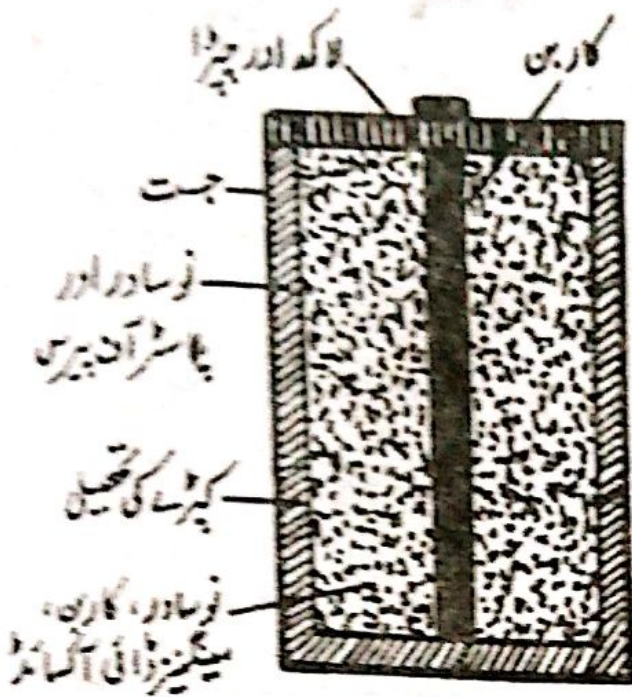 کاربن
لاکھ اور چپڑا
جست
نوسادر اور
پلاسٹر آف پیرس
کپڑے کی تھیلی
نوسادر، کاربن،
مینگنیز ڈائی آکسائڈ